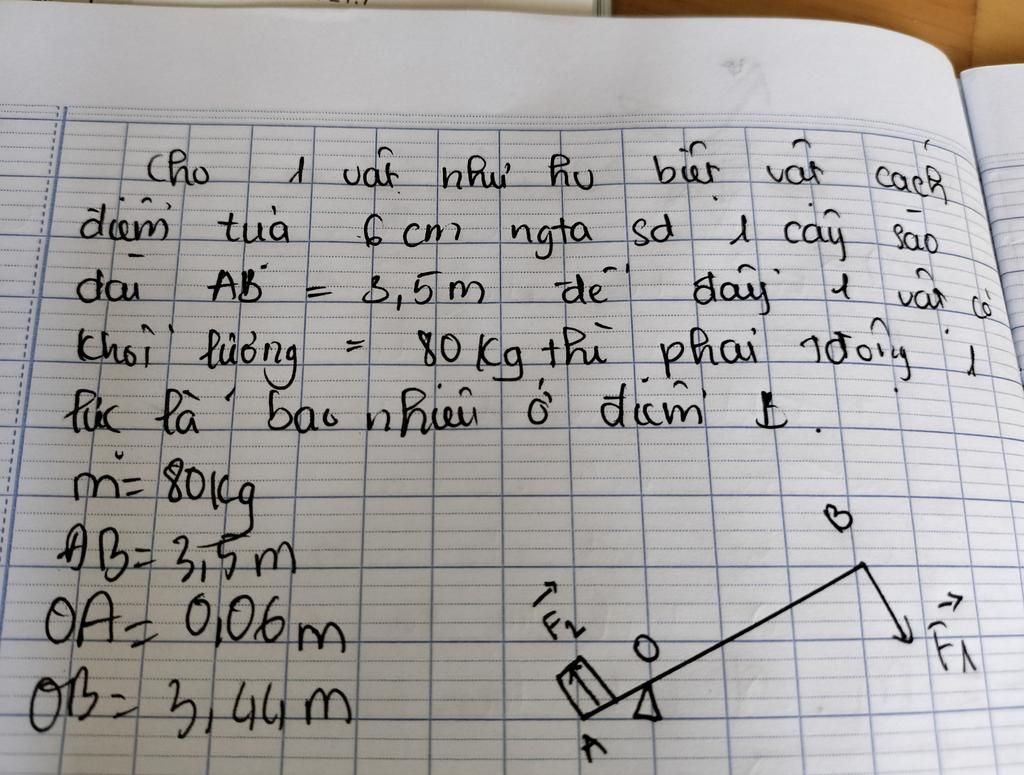 Cho 1 vật như hv biết vật cách
điểm tựa 6 cm ngta sd 1 cây sào
dài AB = 3,5m để đẩy 1 vật có
khối lượng = 80 Kg thì phải dùng 1
lực là bao nhiêu ở điểm
m = 80Kg
AB = 3,5 m
OA = 0,06 m
OB = 3,44 m
B
F2
O
F1
A